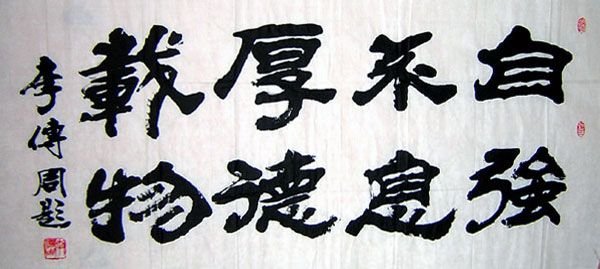 自強
不息
厚德
載物
李傳周題